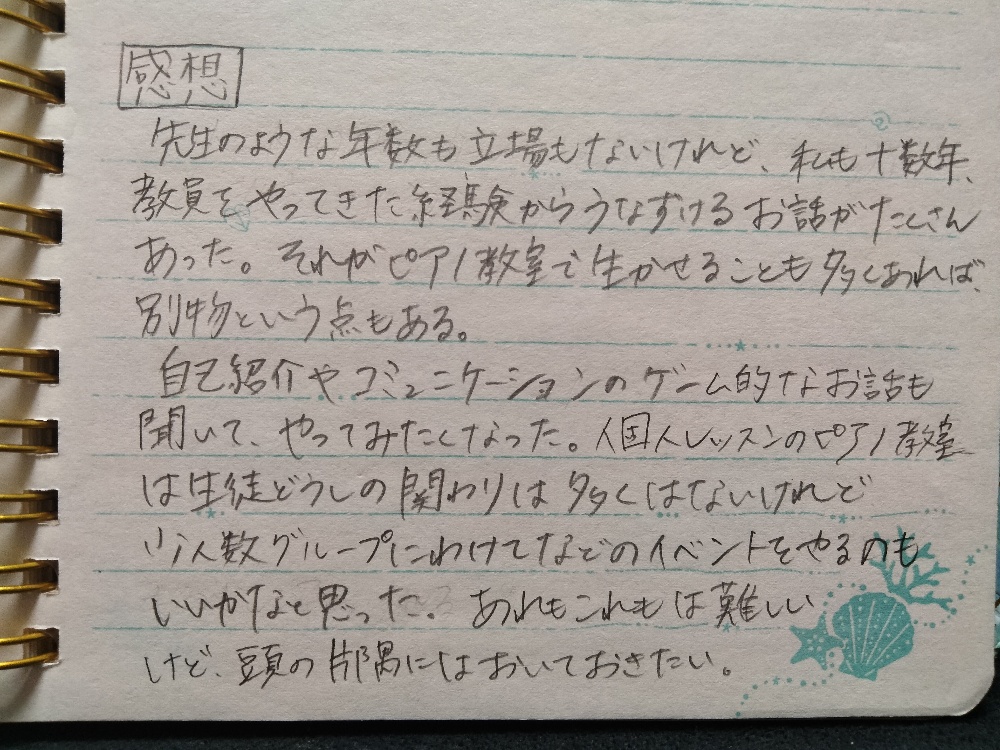 感想
先生のような年数も立場もないけれど、私も十数年、
教員をやってきた経験からうなずけるお話がたくさん
あった。それがピアノ教室で生かせることも多くあれば、
別物という点もある。
自己紹介やコミュニケーションのゲーム的なお話も
聞いて、やってみたくなった。個人レッスンのピアノ教室
は生徒どうしの関わりは多くはないけれど
少人数グループにわけてなどのイベントをやるのも
いいかなと思った。あれもこれもは難しい
けど、頭の片隅にはおいておきたい。